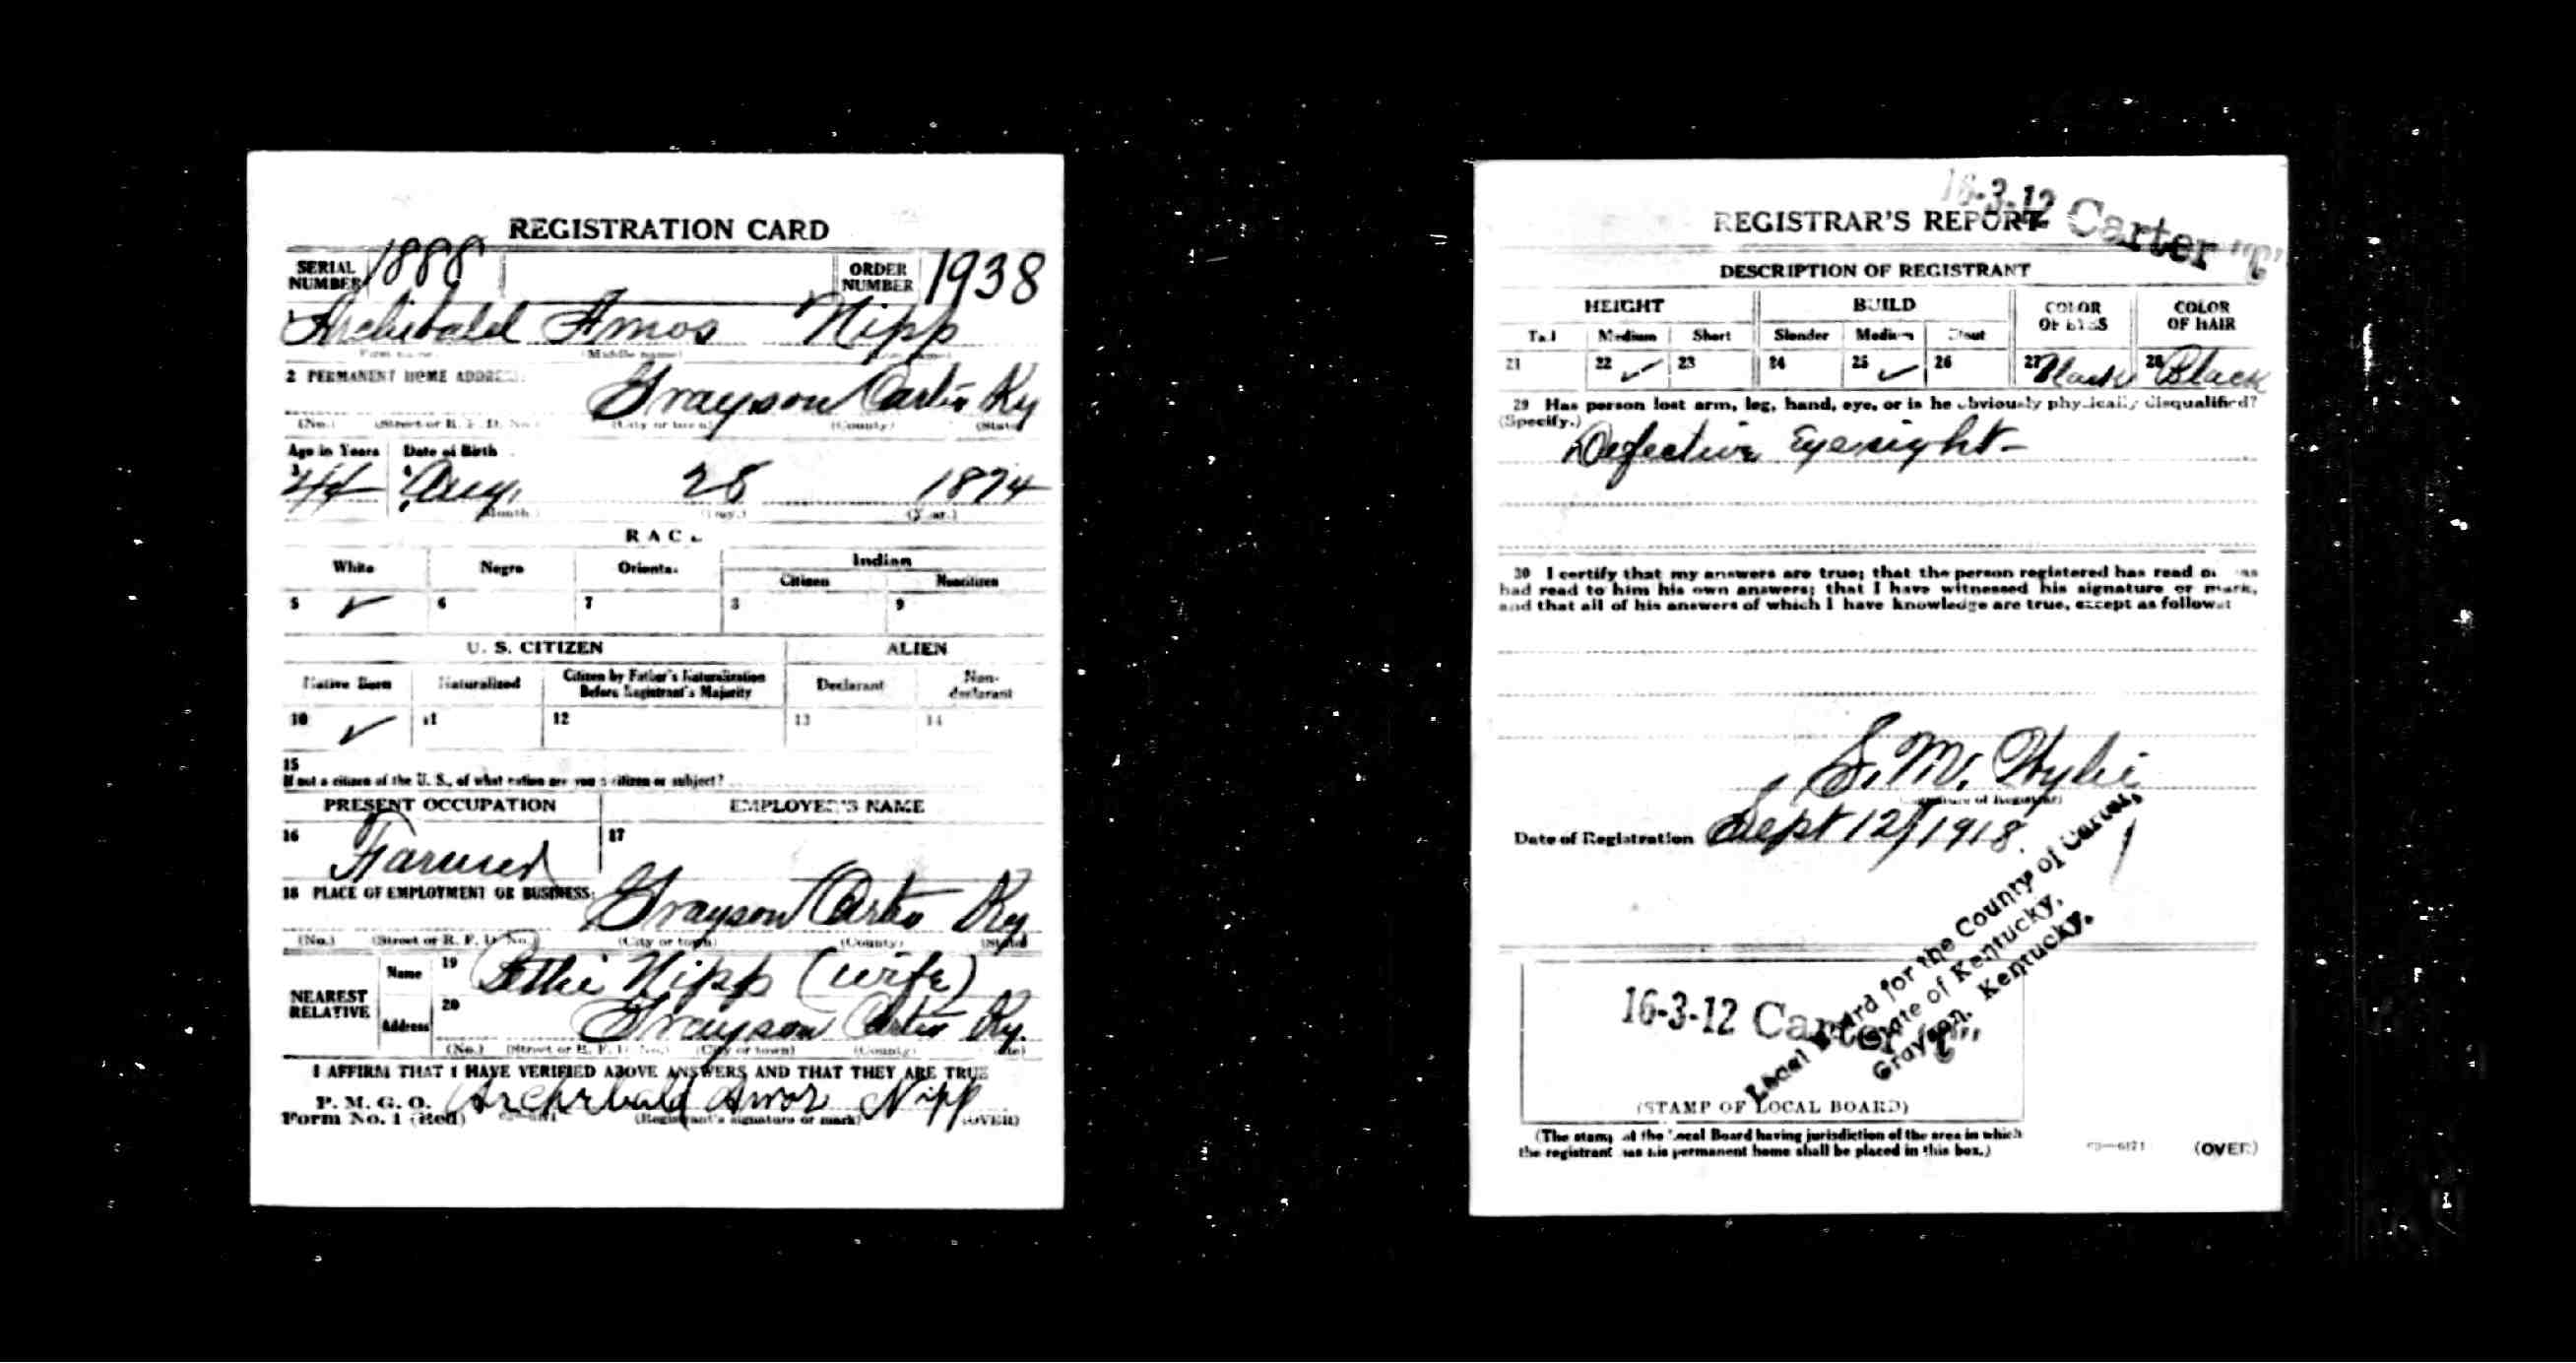 REGISTRATION CARD
SERIAL NUMBER 1888 ORDER NUMBER 1938
1 Archibald Amos Nipp
(First name) (Middle name)
2 PERMANENT HOME ADDRESS:
Grayson Carter Ky
(No.) (Street or R. F. D. No.) (City or town) (County) (State)
Age in Years Date of Birth
3 44 4 Aug. 28 1874
(Month) (Day.) (Year.)
RACE
White Negro Oriental Indian
Citizen Noncitizen
5 ✓ 6 7 8 9
U. S. CITIZEN ALIEN
Native Born Naturalized Citizen by Father's Naturalization Before Registrant's Majority Declarant Non-declarant
10 ✓ 11 12 13 14
15
If not a citizen of the U. S., of what nation are you a citizen or subject?
PRESENT OCCUPATION EMPLOYER'S NAME
16 Farmer 17
18 PLACE OF EMPLOYMENT OR BUSINESS:
Grayson Carter Ky.
(No.) (Street or R. F. D. No.) (City or town) (County) (State)
NEAREST RELATIVE Name 19 Nipp (wife)
Address 20 Grayson Carter Ky.
(No.) (Street or R. F. D. No.) (City or town) (County) (State)
I AFFIRM THAT I HAVE VERIFIED ABOVE ANSWERS AND THAT THEY ARE TRUE
P. M. G. O.
Form No. 1 (Red) Archibald Amos Nipp
(Registrant's signature or mark) (OVER)
16-3-12 Carter "C"
REGISTRAR'S REPORT
DESCRIPTION OF REGISTRANT
HEIGHT BUILD COLOR OF EYES COLOR OF HAIR
Tall Medium Short Slender Medium Stout
21 22 ✓ 23 24 25 ✓ 26 27 Black 28 Black
29 Has person lost arm, leg, hand, eye, or is he obviously physically disqualified?
(Specify.)
Defective Eyesight
30 I certify that my answers are true; that the person registered has read or has
had read to him his own answers; that I have witnessed his signature or mark,
and that all of his answers of which I have knowledge are true, except as follows:
S. M. Wylie
(Signature of Registrar)
Date of Registration Sept 12/1918.
Local Board for the County of Carter,
State of Kentucky,
Grayson, Kentucky.
16-3-12 Carter "C"
(STAMP OF LOCAL BOARD)
(The stamp of the Local Board having jurisdiction of the area in which
the registrant has his permanent home shall be placed in this box.)
(OVER)